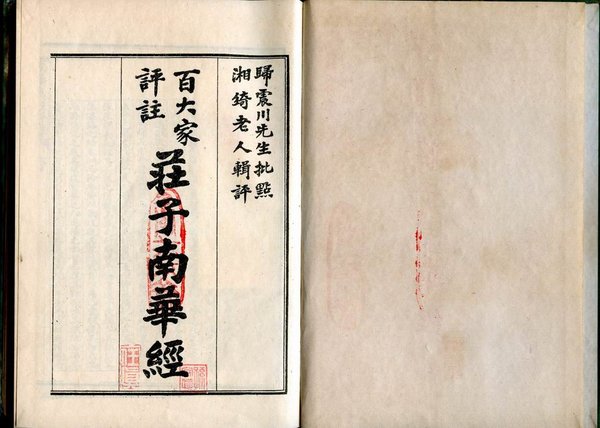 歸震川先生批點
湘錡老人輯評
百大家
評註
莊子南華經